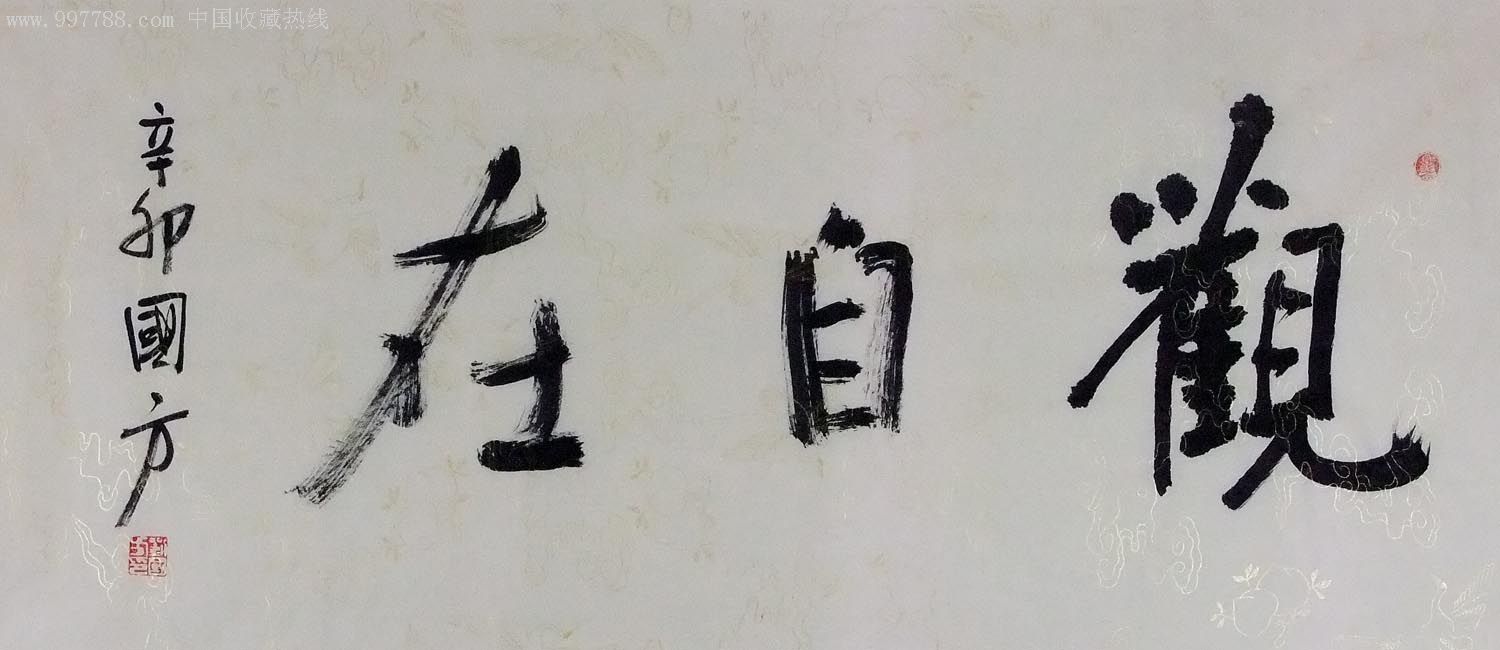 www.997788.com 中国收藏热线
觀自在
辛卯國方